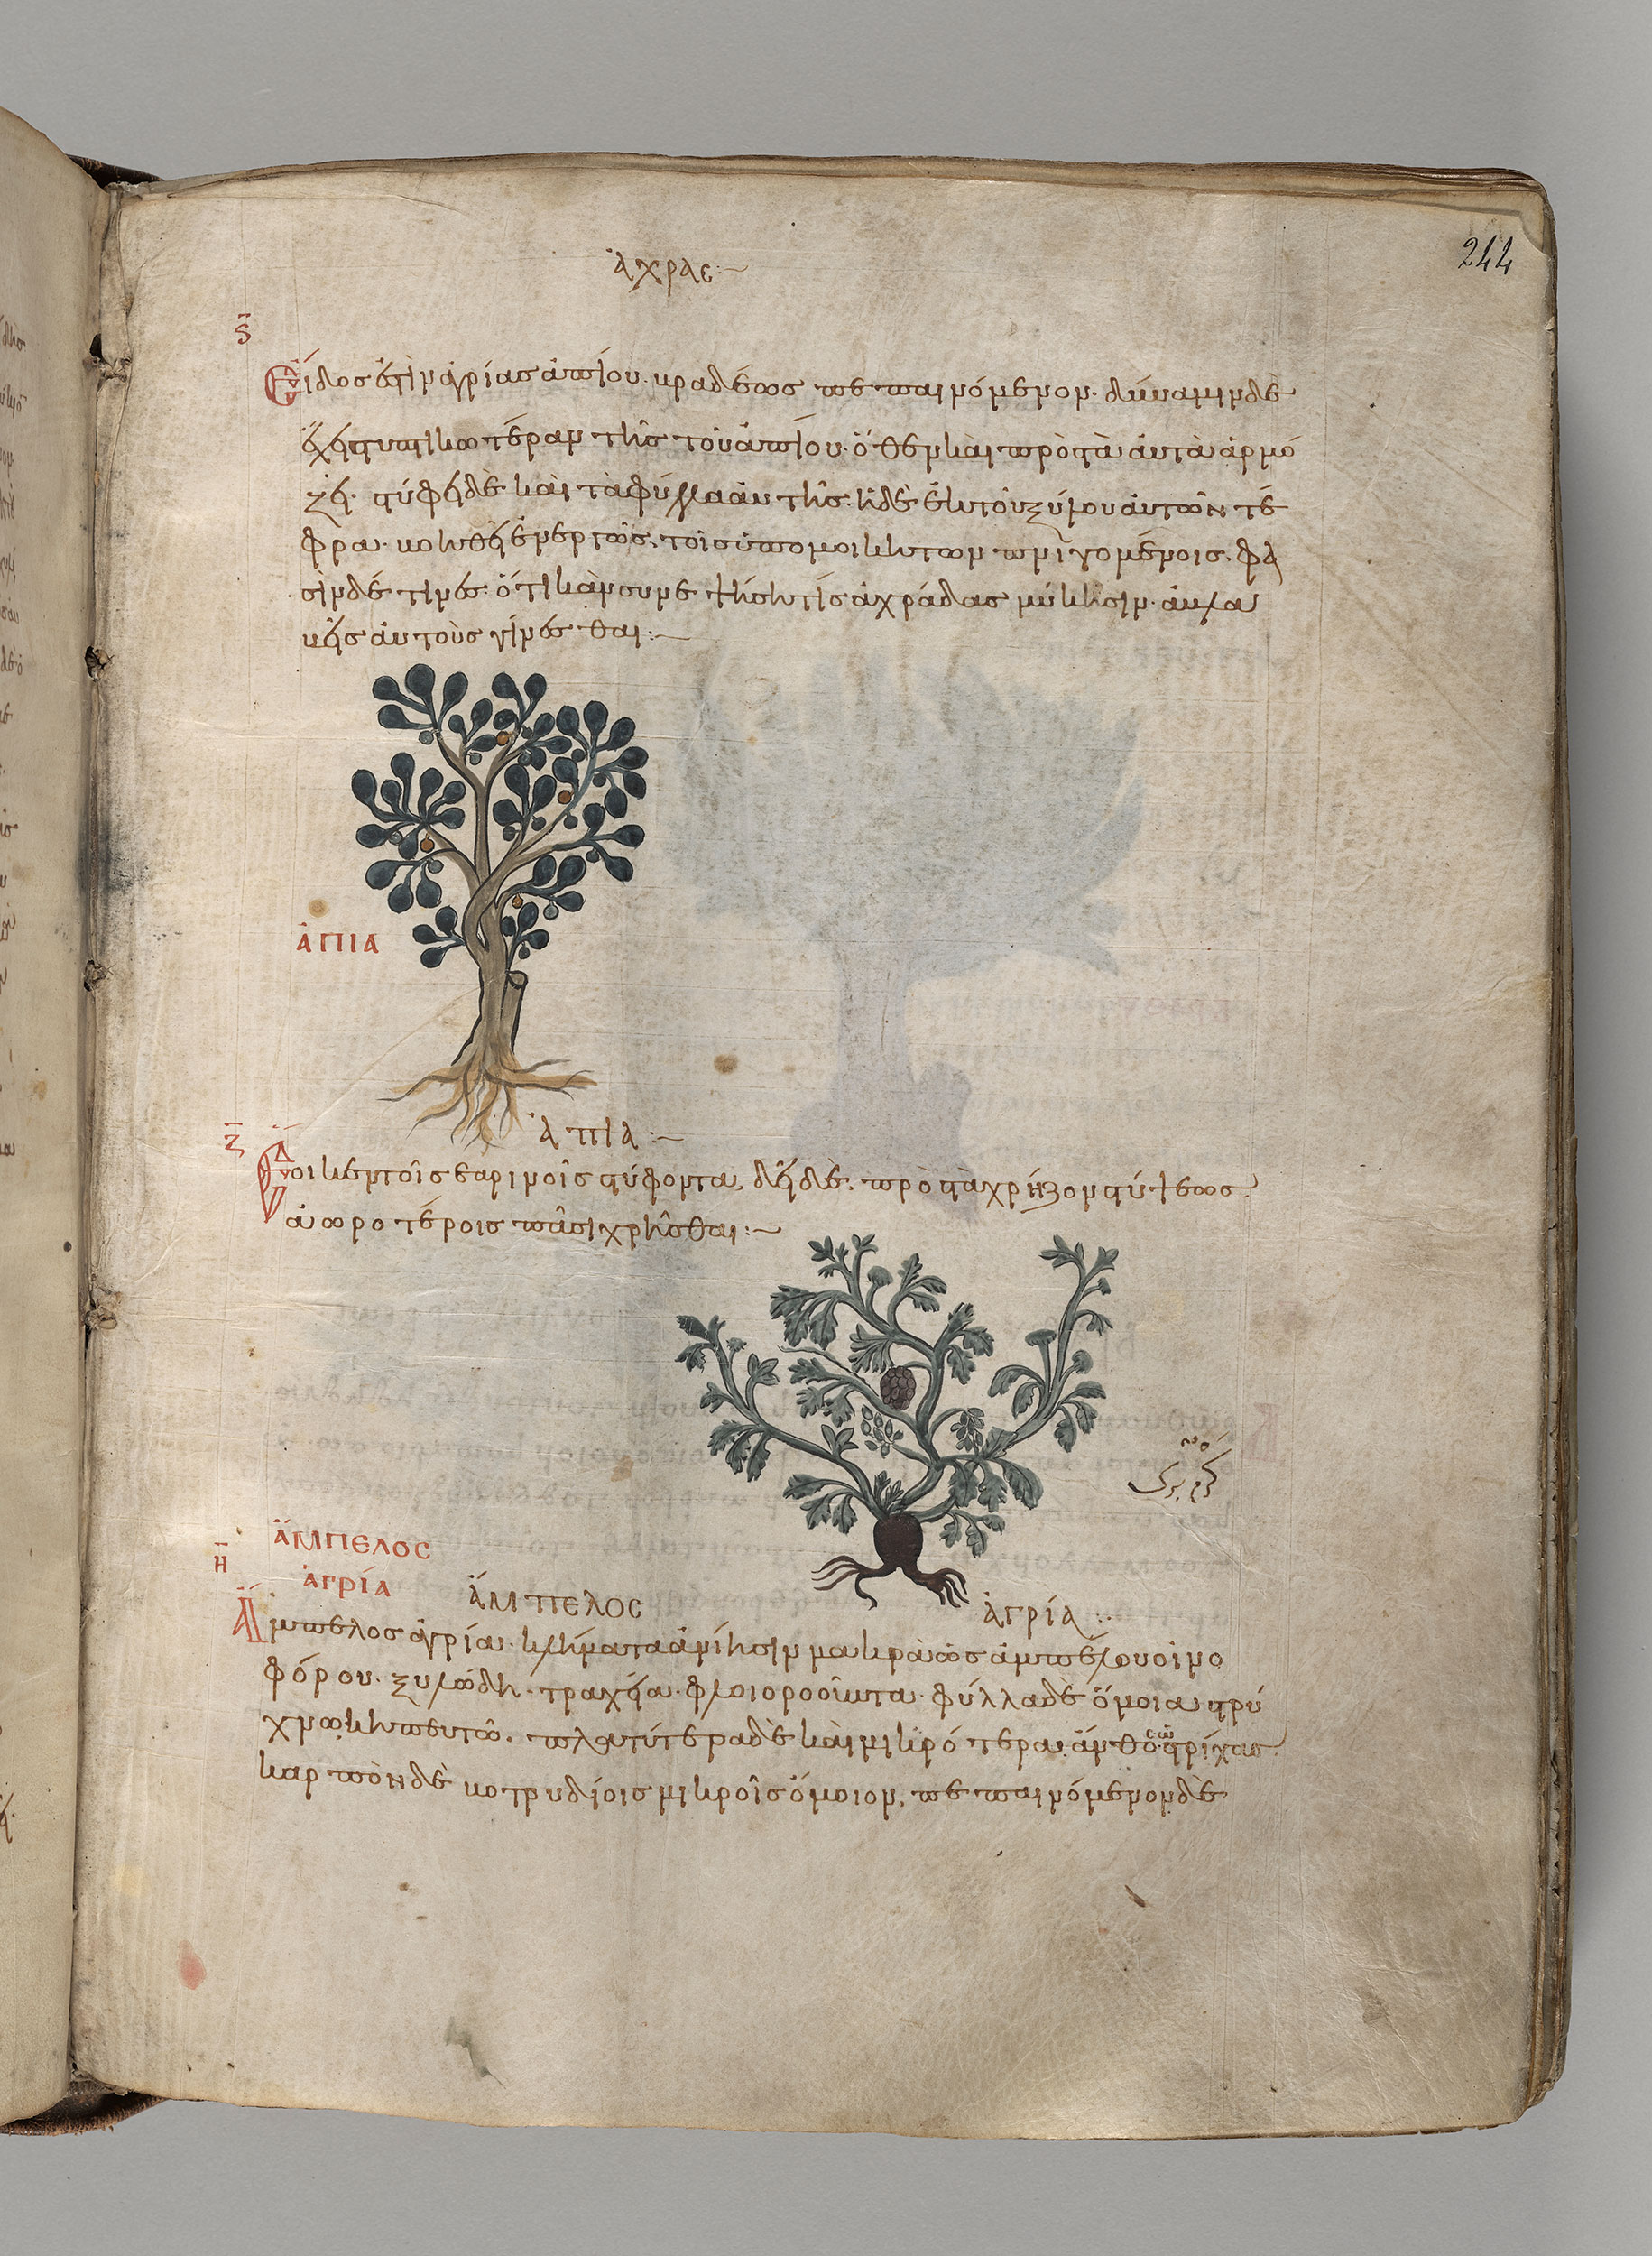 244
ἀχρας:~
ϛ
Εἶδος ἐστὶν ἀγρίας ἀπίου. βραδέως πεπαινόμενον. δύναμιν δὲ
ἔχει στυπτικωτέραν τῆς τοῦ ἀπίου. ὅθεν καὶ πρὸς τὰ αὐτὰ ἁρμό
ζει. στύφει δὲ καὶ τὰ φύλλα αὐτῆς. ἡ δὲ ἐκ τοῦ ξύλου αὐτῶν τέ
φρα. βοηθεῖ ἐνεργῶς. τοῖς ὑπὸ μυκήτων πνιγομένοις. φα
σὶν δέ τινες ὅτι κἂν συνεψήσῃ τίς ἀχράδας μύκησιν. ἀβλα
βεῖς αὐτοὺς γίνεσθαι:~
ἀπια
ζ
ἀπιὰ:~
οἱ μὲν τοῖς ἐαρινοῖς στύφοντα. δεῖ δὲ. πρὸς τὰ χρήζον στύψεως
ἀωροτέροις πᾶσι χρῆσθαι:~
ἄμπελος
ἀγρία
η
ἄμπελος ἀγρία:
Ἄμπελος ἀγρία. κλήματα ἀνίησιν μακρὰ ὡς ἀμπέλου οἰνο
φόρου. ξυλώδη. τραχέα. φλοιοροοῦντα. φύλλα δὲ ὅμοια στρύ
χνῳ κηπευτῷ. πλατύτερα δὲ καὶ μικρότερα. ἄνθος ὡς τρίχας.
καρπὸν δὲ βοτρυδίοις μικροῖς ὅμοιον. πεπαινόμενον δὲ